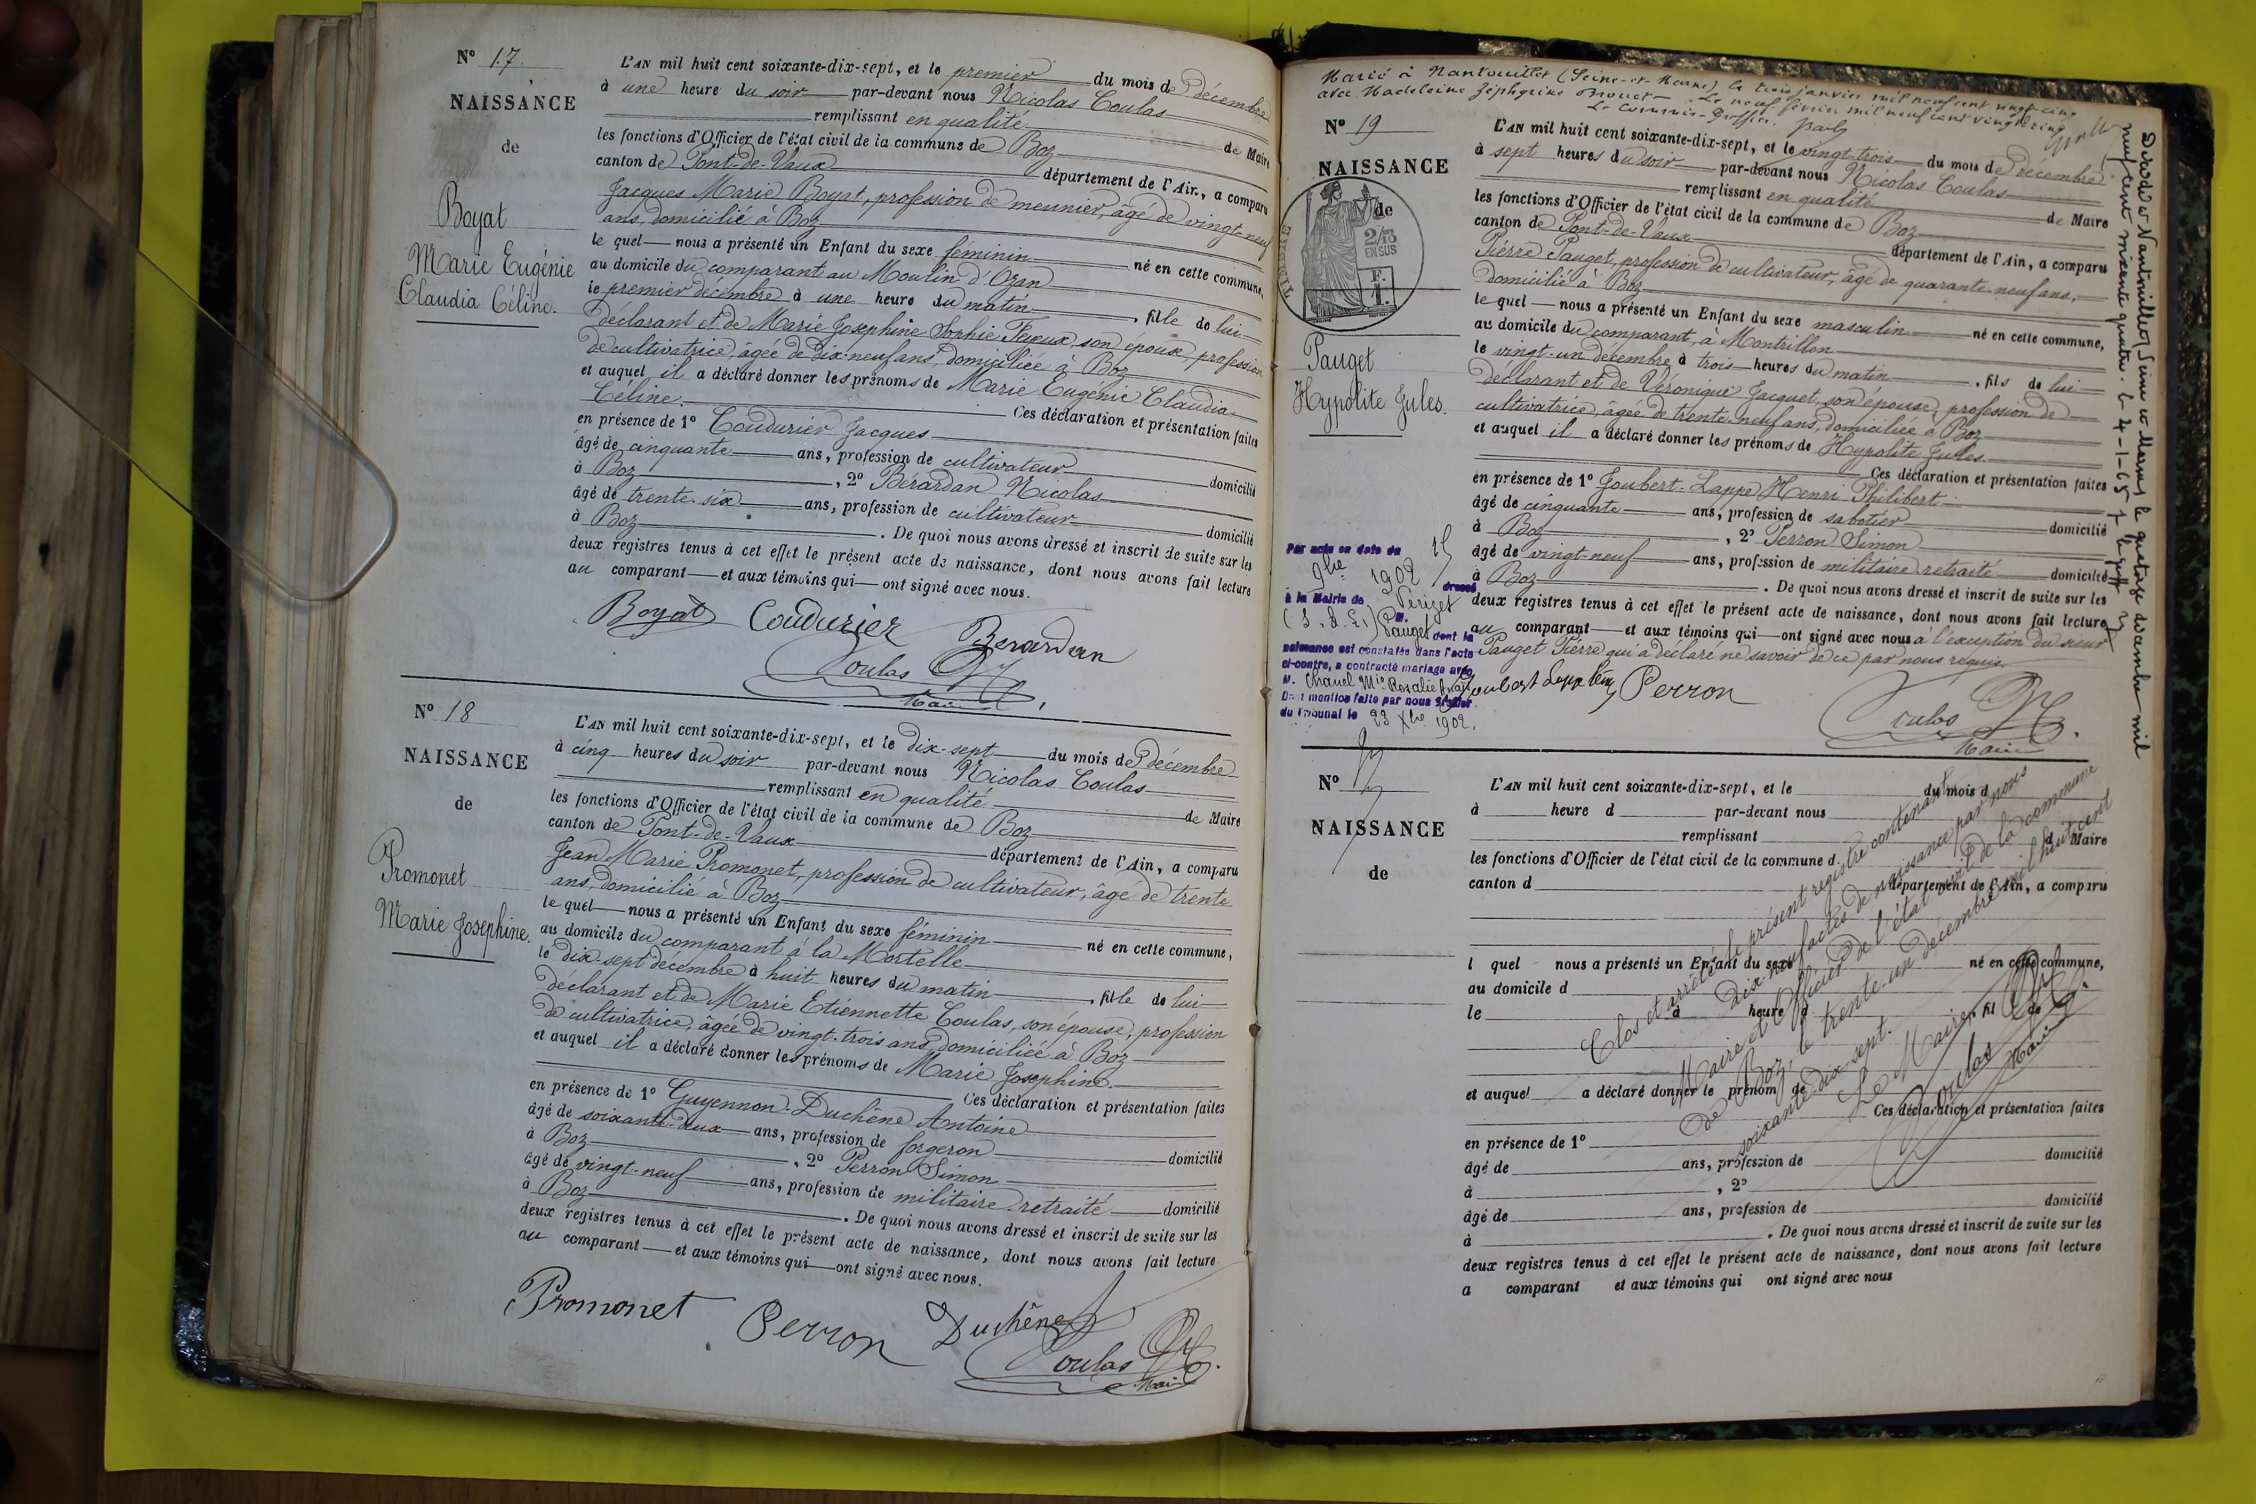 N° 17
NAISSANCE
de
Boyat
Marie Eugénie
Claudia Céline.
L'AN mil huit cent soixante-dix-sept, et le premier du mois de Décembre
à une heure du soir par-devant nous Nicolas Coulas
remplissant en qualité de Maire
les fonctions d'Officier de l'état civil de la commune de Boz
canton de Pont-de-Vaux département de l'Ain, a comparu
Jacques Marie Boyat, profession de meunier, âgé de vingt-neuf
ans, domicilié à Boz
le quel nous a présenté un Enfant du sexe féminin né en cette commune,
au domicile du comparant au Moulin d'Ozan
le premier décembre à une heure du matin, fille de lui
déclarant et de Marie Josephine Sophie son épouse, profession
de cultivatrice, âgée de dix-neuf ans, domiciliée à Boz
et auquel il a déclaré donner les prénoms de Marie Eugénie Claudia
Céline. Ces déclaration et présentation faites
en présence de 1° Coudurier Jacques
âgé de cinquante ans, profession de cultivateur domicilié
à Boz, 2° Berardan Nicolas
âgé de trente-six ans, profession de cultivateur domicilié
à Boz. De quoi nous avons dressé et inscrit de suite sur les
deux registres tenus à cet effet le présent acte de naissance, dont nous avons fait lecture
au comparant et aux témoins qui ont signé avec nous.
Boyat Coudurier Berardan
Coulas
Maire
N° 18
NAISSANCE
de
Promonet
Marie Josephine.
L'AN mil huit cent soixante-dix-sept, et le dix-sept du mois de Décembre
à cinq heures du soir par-devant nous Nicolas Coulas
remplissant en qualité de Maire
les fonctions d'Officier de l'état civil de la commune de Boz
canton de Pont-de-Vaux département de l'Ain, a comparu
Jean Marie Promonet, profession de cultivateur, âgé de trente
ans, domicilié à Boz
le quel nous a présenté un Enfant du sexe féminin né en cette commune,
au domicile du comparant à la Mortelle
le dix-sept décembre à huit heures du matin, fille de lui
déclarant et de Marie Etiennette Coulas, son épouse, profession
de cultivatrice, âgée de vingt-trois ans, domiciliée à Boz
et auquel il a déclaré donner les prénoms de Marie Josephine.
Ces déclaration et présentation faites
en présence de 1° Guyennon-Duchêne Antoine
âgé de soixante-deux ans, profession de forgeron domicilié
à Boz, 2° Perron Simon
âgé de vingt-neuf ans, profession de militaire retraité domicilié
à Boz. De quoi nous avons dressé et inscrit de suite sur les
deux registres tenus à cet effet le présent acte de naissance, dont nous avons fait lecture
au comparant et aux témoins qui ont signé avec nous.
Promonet Perron Duchêne
Coulas
Maire
Marié à Nantouillet (Seine-et-Marne) le trois janvier mil neuf cent vingt cinq
avec Madeleine Zéphyrine Brouet. Le neuf février mil neuf cent vingt cinq
Le Commis-Greffier.
N° 19
NAISSANCE
de
2/10
EN SUS
F.
1.
Pauget
Hypolite Jules.
L'AN mil huit cent soixante-dix-sept, et le vingt-trois du mois de Décembre
à sept heures du soir par-devant nous Nicolas Coulas
remplissant en qualité de Maire
les fonctions d'Officier de l'état civil de la commune de Boz
canton de Pont-de-Vaux département de l'Ain, a comparu
Pierre Pauget, profession de cultivateur, âgé de quarante-neuf ans,
domicilié à Boz
le quel nous a présenté un Enfant du sexe masculin né en cette commune,
au domicile du comparant, à Montrillon
le vingt-un décembre à trois heures du matin, fils de lui
déclarant et de Véronique Jacquet, son épouse, profession de
cultivatrice, âgée de trente-neuf ans, domiciliée à Boz
et auquel il a déclaré donner les prénoms de Hypolite Jules.
Ces déclaration et présentation faites
en présence de 1° Joubert-Lappe Henri Philibert
âgé de cinquante ans, profession de sabotier domicilié
à Boz, 2° Perron Simon
âgé de vingt-neuf ans, profession de militaire retraité domicilié
à Boz. De quoi nous avons dressé et inscrit de suite sur les
deux registres tenus à cet effet le présent acte de naissance, dont nous avons fait lecture
au comparant et aux témoins qui ont signé avec nous à l'exception du sieur
Pauget Pierre qui a déclaré ne savoir de ce par nous requis.
Perron
Coulas
Maire
Par acte en date du 15
9bre 1902 dressé
à la Mairie de Vérizet
(S.-&-L.) M.
Pauget dont la
naissance est constatée dans l'acte
ci-contre, a contracté mariage avec
M. Chanel Mie Rosalie
Dont mention faite par nous Greffier
du Tribunal le 23 Xbre 1902.
Décédé à Nantouillet (Seine et Marne) le quatorze décembre mil
neuf cent soixante quatre. le 4-1-65
N°
NAISSANCE
de
L'AN mil huit cent soixante-dix-sept, et le du mois d
à heure d par-devant nous
remplissant d Maire
les fonctions d'Officier de l'état civil de la commune d
canton d département de l'Ain, a comparu
l quel nous a présenté un Enfant du sexe né en cette commune,
au domicile d
le à heure d fil de
et auquel a déclaré donner le prénom de
Ces déclaration et présentation faites
en présence de 1°
âgé de ans, profession de domicilié
à , 2°
âgé de ans, profession de domicilié
à . De quoi nous avons dressé et inscrit de suite sur les
deux registres tenus à cet effet le présent acte de naissance, dont nous avons fait lecture
a comparant et aux témoins qui ont signé avec nous
Clos et arrêté le présent registre contenant
dix-neuf actes de naissance par nous
Maire et Officier de l'état civil de la commune
de Boz, le trente-un décembre mil huit cent
soixante-dix-sept.
Le Maire
Coulas
Maire